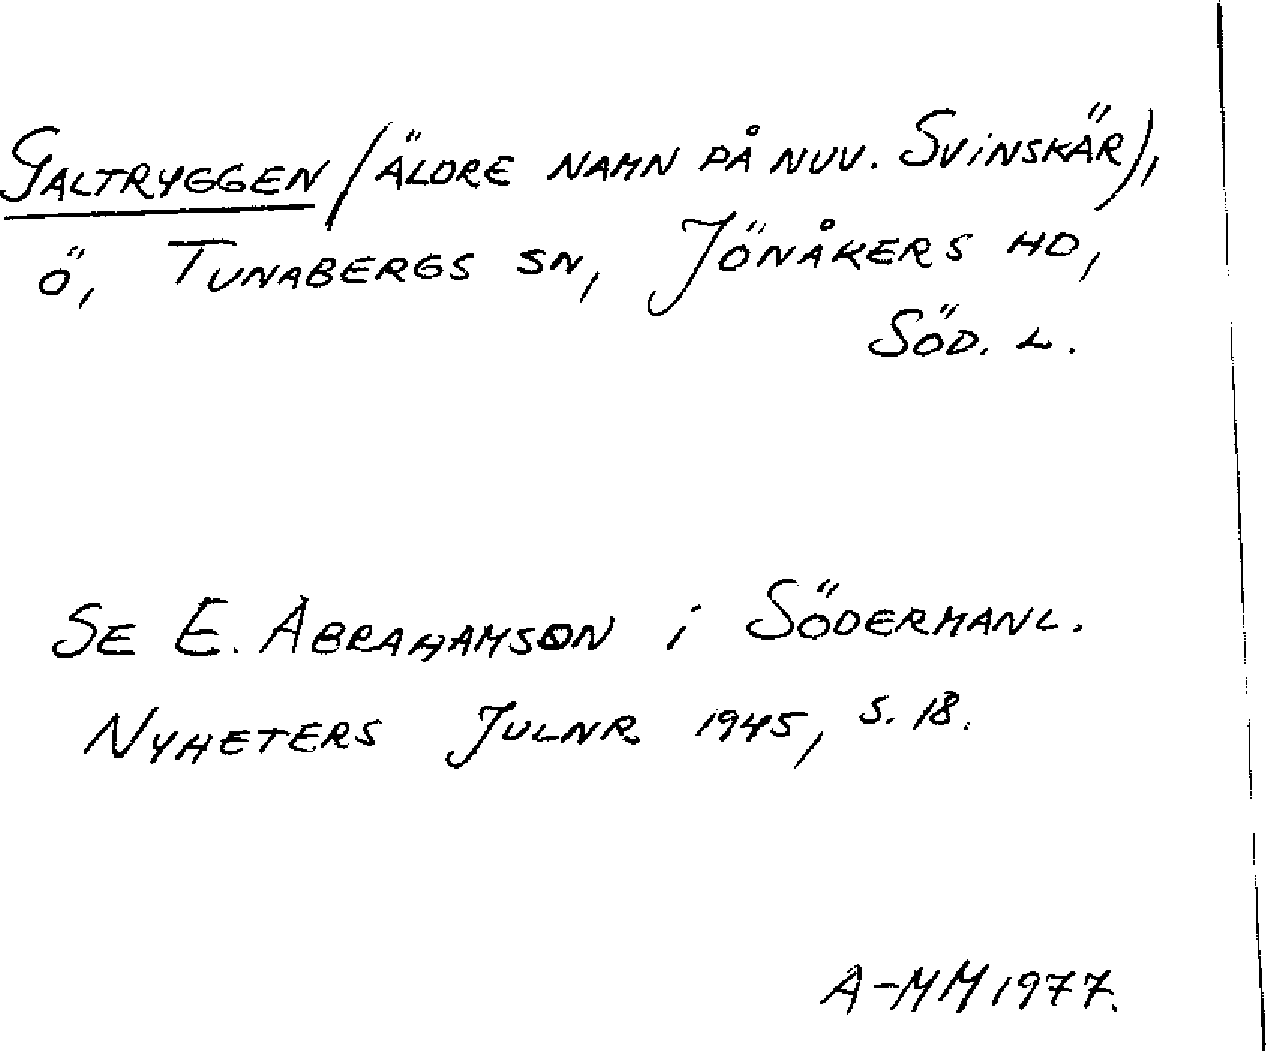 GALTRYGGEN (ÄLDRE NAMN PÅ NUV. SVINSKÄR),
Ö, TUNABERGS SN, JÖNÅKERS HD,
SÖD. L.
SE E. ABRAHAMSON i SÖDERMANL.
NYHETERS JULNR 1945, S. 18.
A-MM 1977.